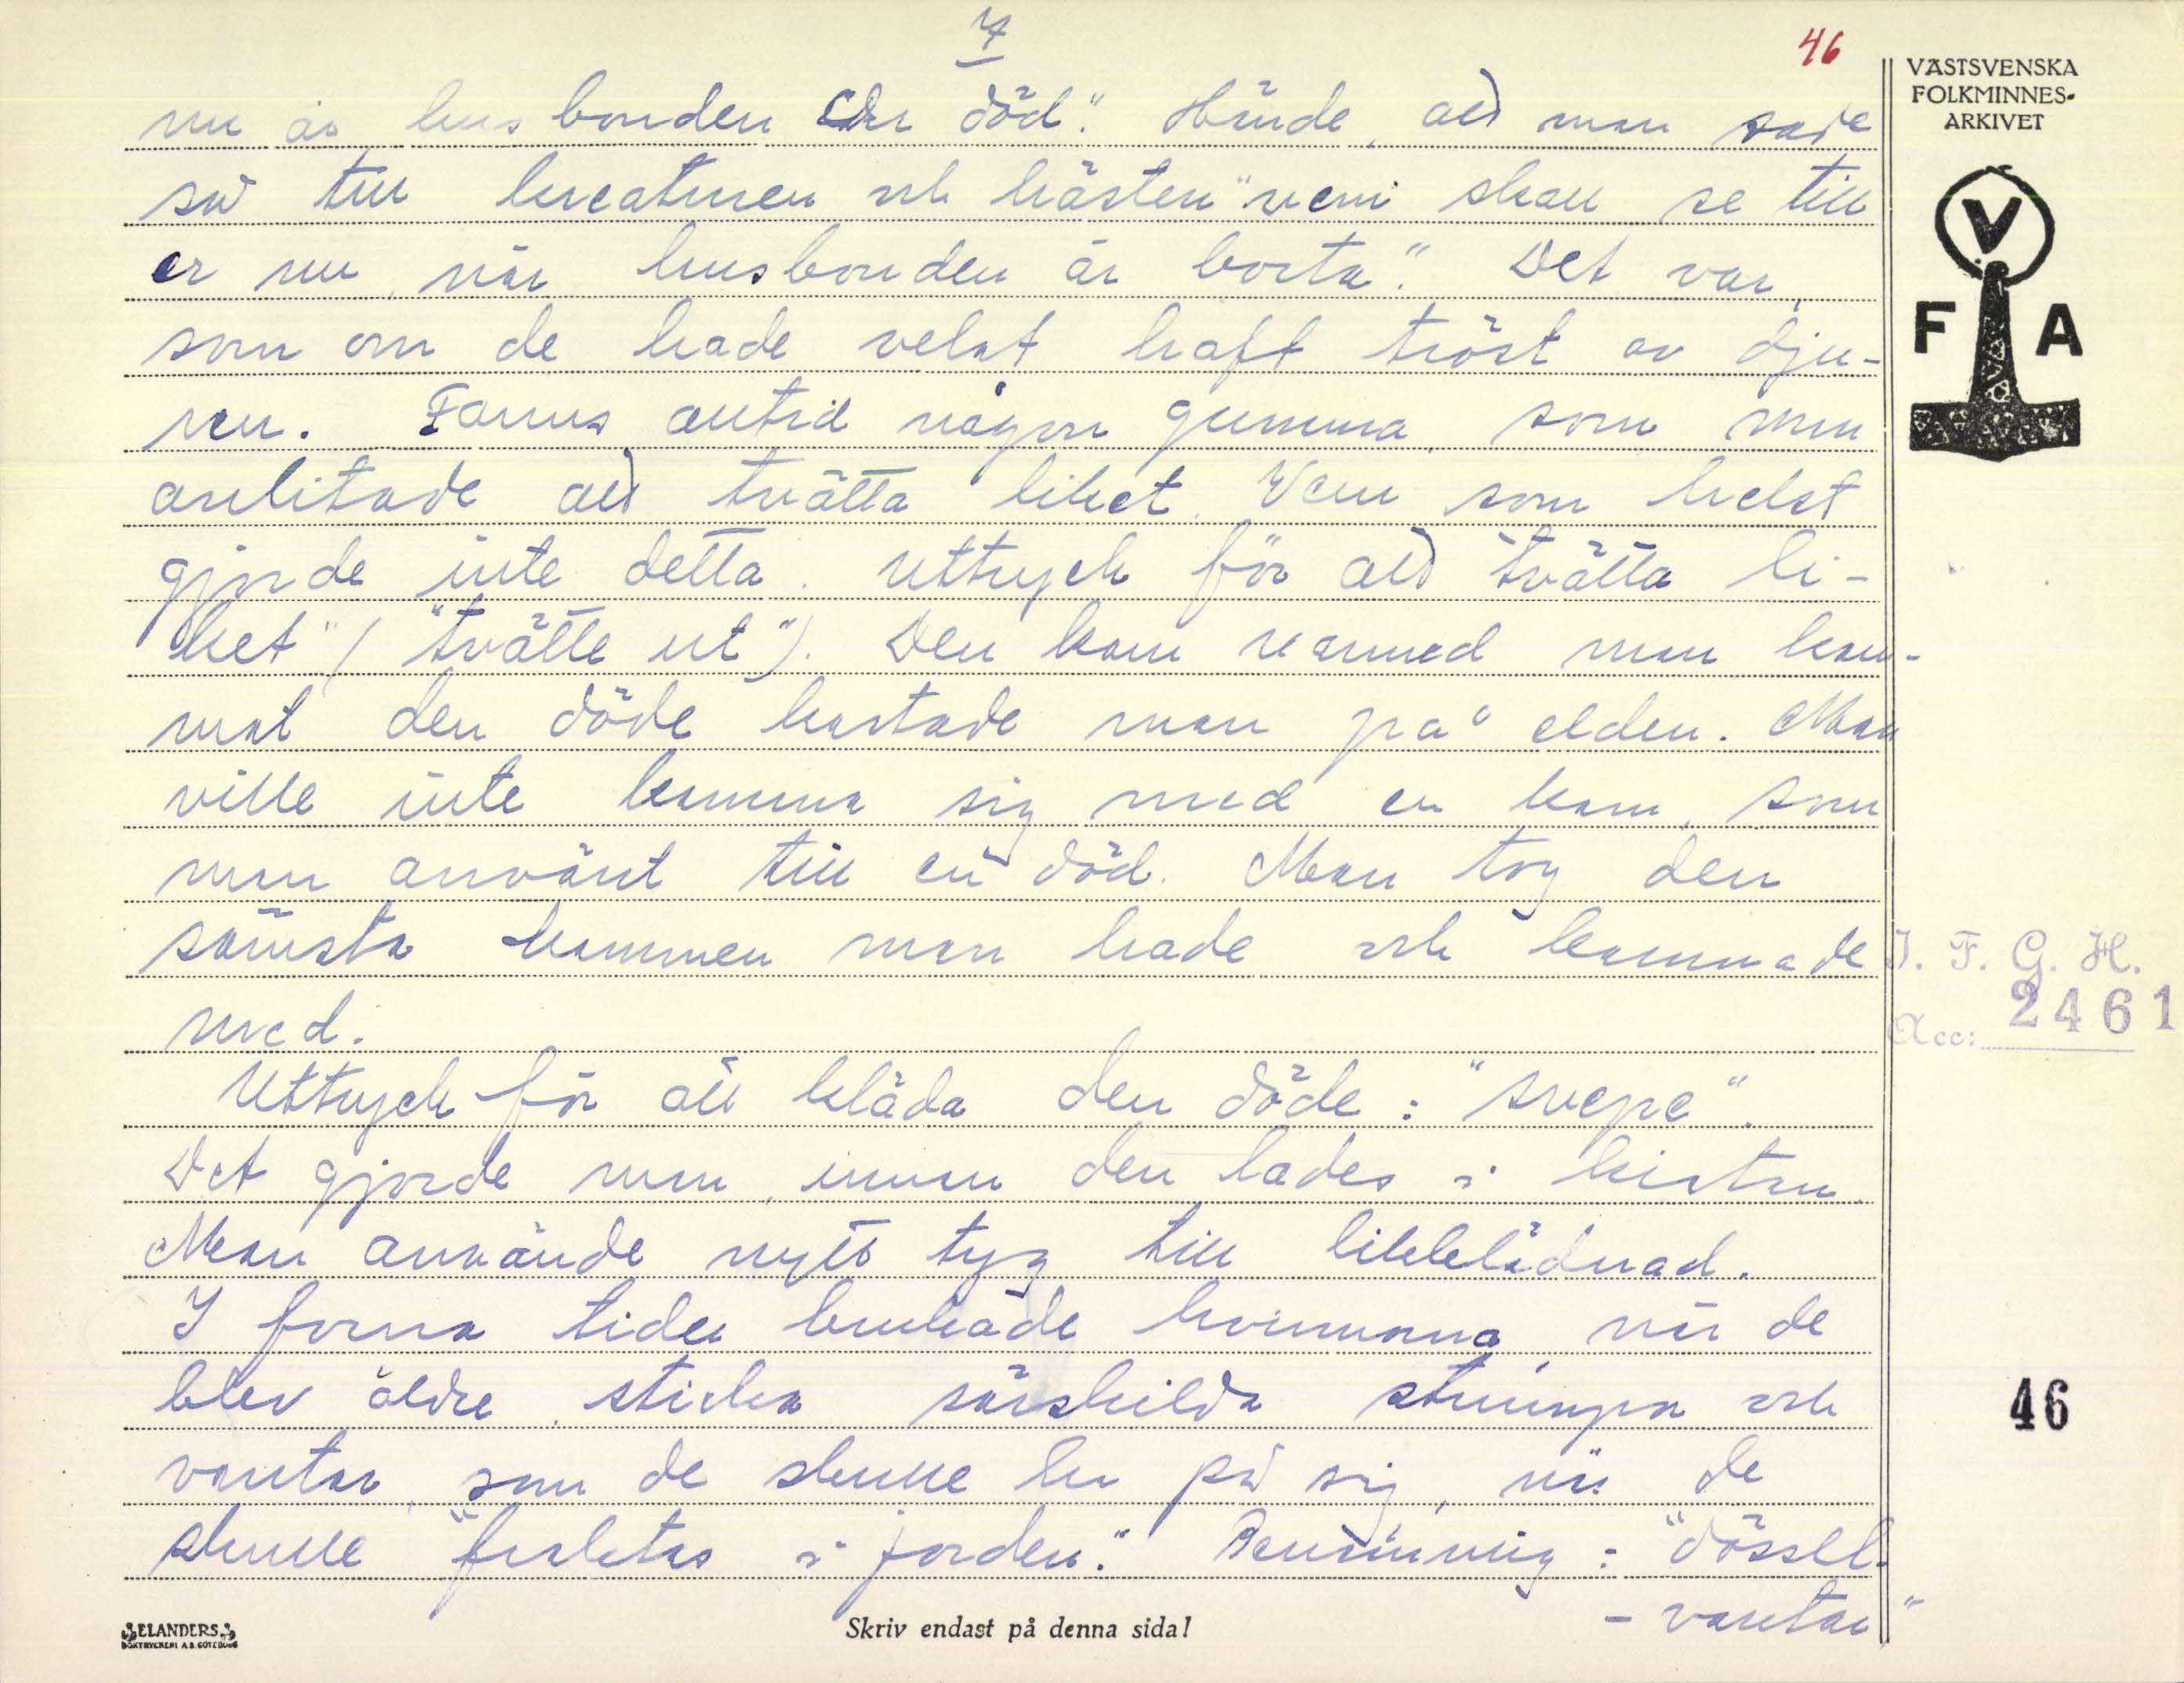 7
46
VÄSTSVENSKA
FOLKMINNES-
ARKIVET
V
F A
nu är husbonden er död." Hände, att man sade
så till kreaturen och hästen "vem skall se till
er nu, när husbonden är borta". Det var,
som om de hade velat haft tröst av dju-
ren. Fanns alltid någon gumma, som man
anlitade att tvätta liket. Vem som helst
gjorde inte detta. Uttryck för att tvätta li-
ket" ( "tvätte ut"). Den kam varmed man kam-
mat den döde kastade man på elden. Man
ville inte kamma sig med en kam, som
man använt till en död. Man tog den
sämsta kammen man hade och kammade
med.
Uttryck för att kläda den döde: "svepe".
Det gjorde man, innan den lades i kistan.
Man använde nytt tyg till liklädnad.
I forna tider brukade kvinnorna, när de
blev äldre, sticka särskilda strumpor och
vantar, som de skulle ha på sig, när de
skulle "fraktas i jorden." Benämning: "dössel-
- vantar"
I. F. G. H.
Acc: 2461
46
ELANDERS
BOKTRYCKERI A.B. GÖTEBORG
Skriv endast på denna sida!